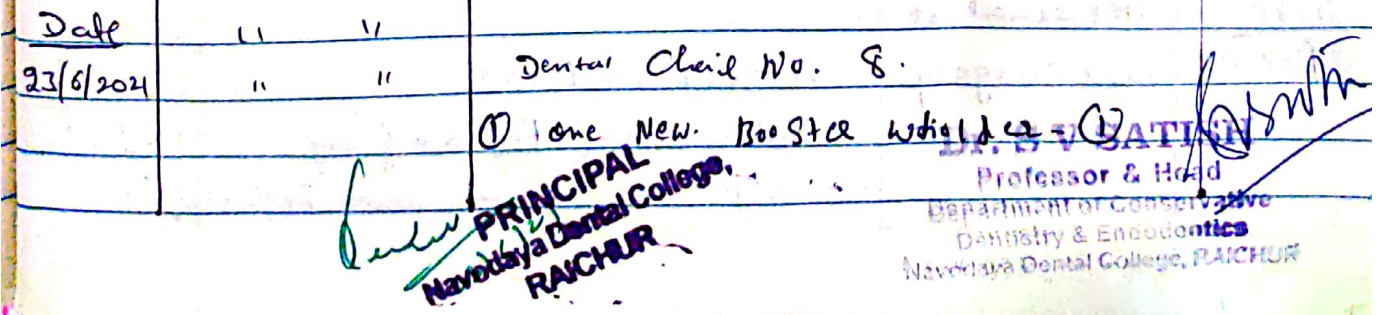 Date " "
23/6/2021 " " Dental Chair No. 8.
① one New. Booster - ①
PRINCIPAL
Navodaya Dental College,
RAICHUR
Dr. S V SATISH
Professor & Head
Department of Conservative
Dentistry & Endodontics
Navodaya Dental College, RAICHUR